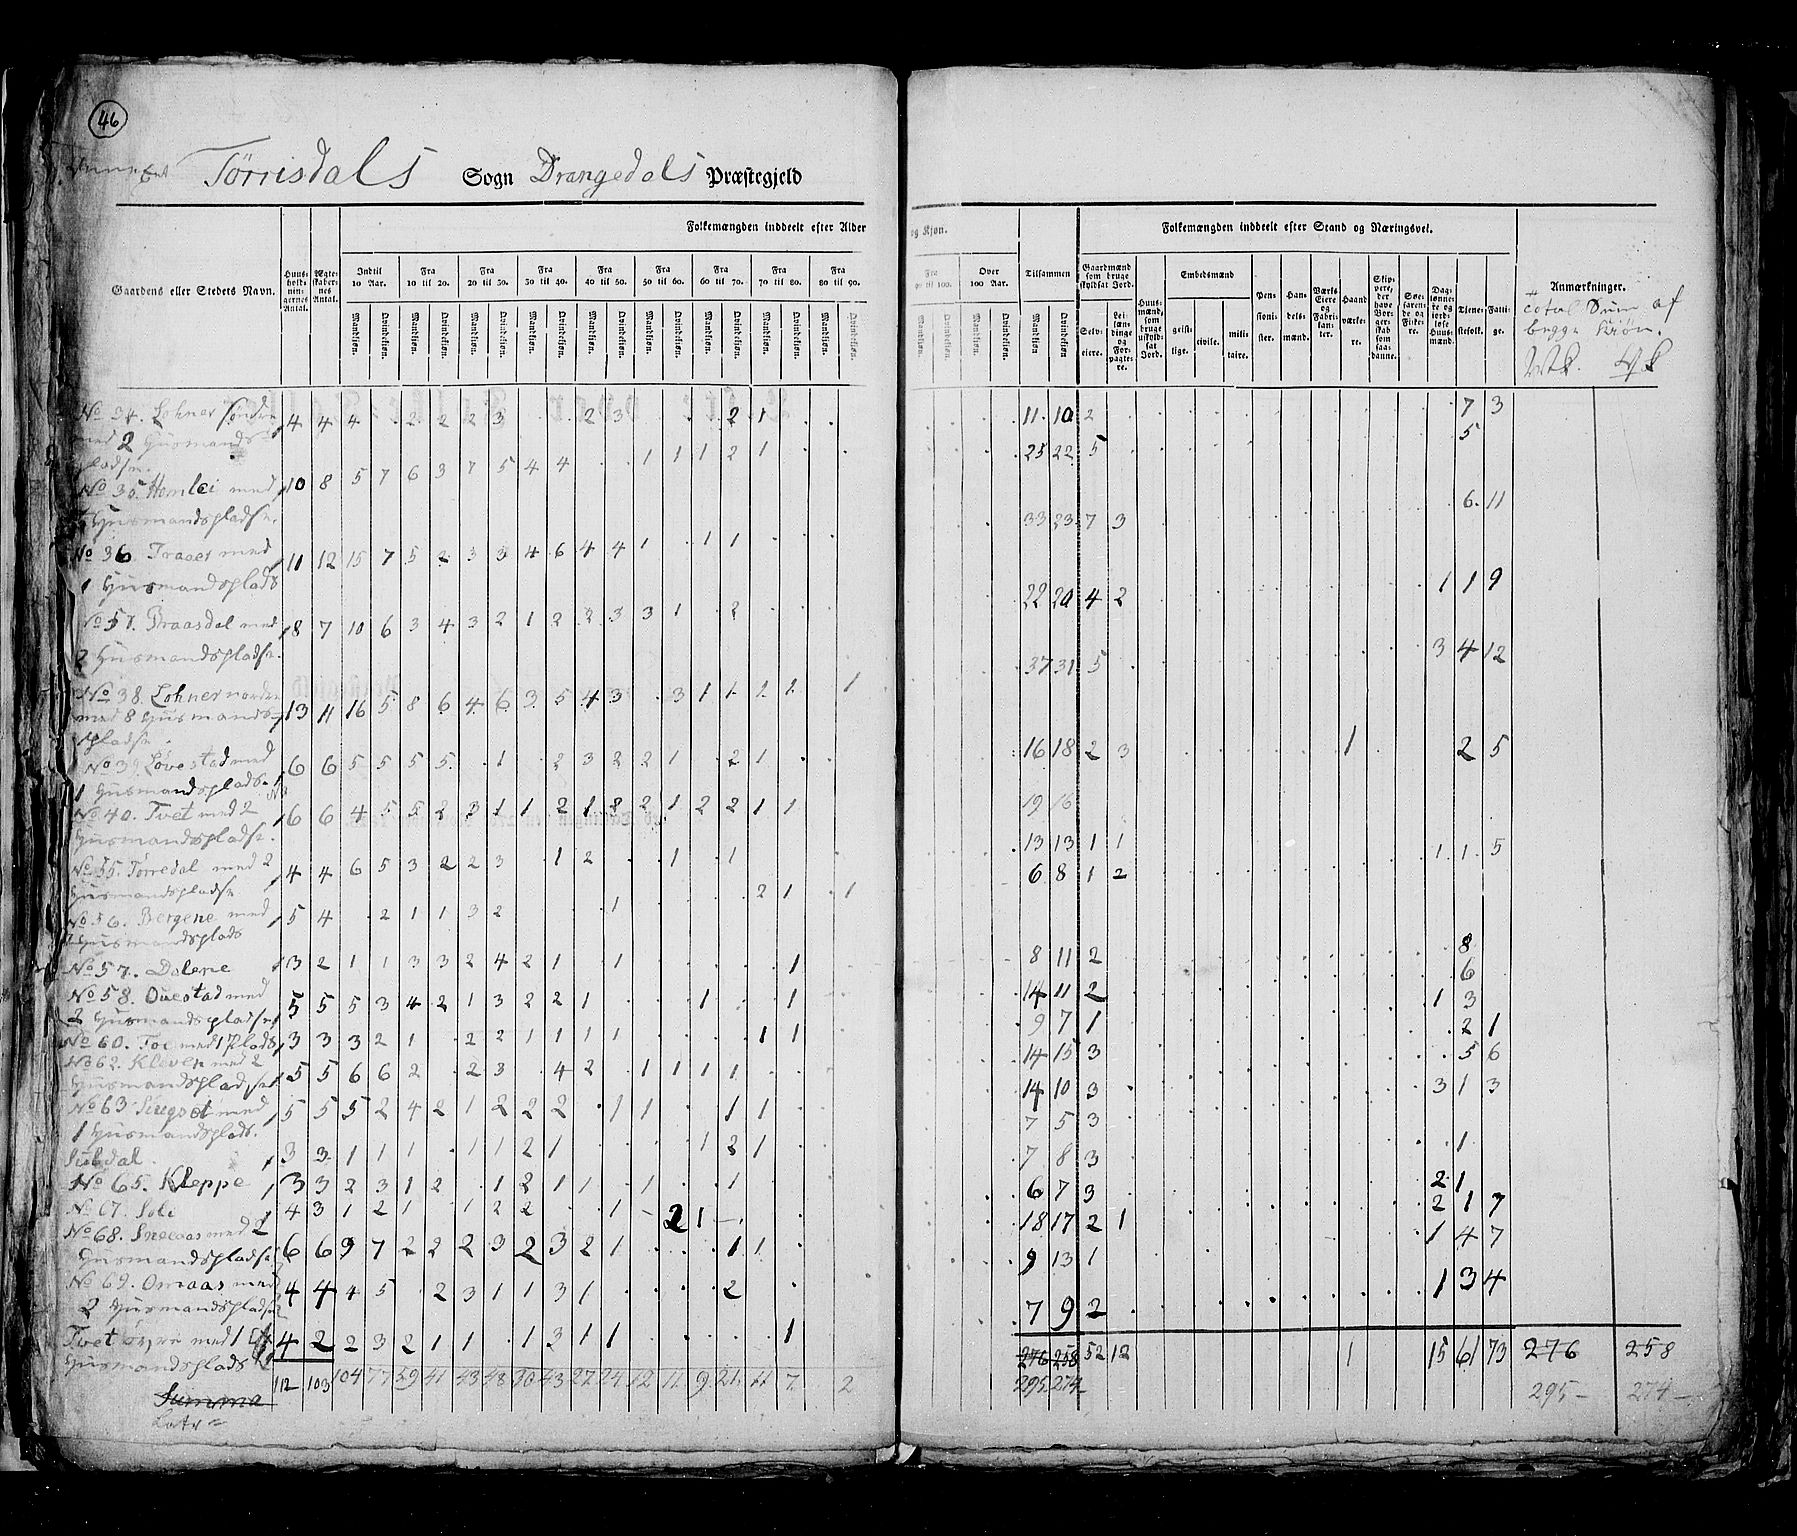 46
Törrisdals Sogn Drangedals Præstegjeld
Folkemængden inddeelt efter Alder og Kjøn.
Folkemængden inddeelt efter Stand og Næringsvei.
Gaardens eller Stedets Navn.
Huusholdningernes Antal.
Ægteskabernes Antal.
Indtil 10 Aar.
Fra 10 til 20.
Fra 20 til 30.
Fra 30 til 40.
Fra 40 til 50.
Fra 50 til 60.
Fra 60 til 70.
Fra 70 til 80.
Fra 80 til 90.
Fra 90 til 100.
Over 100 Aar.
Tilsammen
Mandkiøn. Qvindekiøn.
Gaardmænd som bruge skyldsat Jord.
Selveiere.
Leilændinge og Forpagtere.
Huusmænd, som bruge uskyldsat Jord.
Embedsmænd
geistlige. civile. militaire.
Pensionister.
Handelsmænd.
Værks Eiere og Fabrikanter.
Haandværkere.
Skippere, der have Borgerskab som saadanne.
Søefarende og Fiskere.
Daglønnere og jordløse Huusmænd.
Tjenestefolk.
Fattige.
Anmærkninger.
total Sum af
begge Kiøn.
No 34. Lohner söndre 4 4 4 . 2 2 2 3 . . 2 3 . . . 2 1 . . 11 10 2 7 3
med 2 Huusmands 5
pladse.
No 35. Homlei med 10 8 5 7 6 3 7 5 4 4 . . 1 1 1 2 1 . . 25 22 5 6 11
Huusmandspladse.
No 36. Traaer med 11 12 15 7 5 2 3 3 4 6 4 4 1 . 1 1 . . . 33 23 7 3
1 Huusmandsplads
No 37. Braasdal med 8 7 10 6 3 4 3 2 1 2 2 3 3 1 . 2 . . . 22 20 4 2 1 1 9
2 Huusmandspladse.
No 38. Lohner nordre 13 11 16 5 8 6 4 6 3 5 4 3 . 3 1 1 1 1 . 1 37 31 5 3 4 12
med 8 Huusmands
pladse.
No 39. Lövestad med 6 6 5 5 5 5 . 1 . 2 3 2 2 1 . 2 1 . . 16 18 2 3 1 2 5
1 Huusmandsplads.
No 40. Tvet med 2 6 6 4 5 5 2 3 1 1 2 1 2 2 1 2 2 1 1 19 16
Huusmandspladse.
No 55. Törredal med 2 4 4 6 5 3 2 2 3 . 1 2 . . 1 . 1 13 13 1 1 1 1 5
Huusmandspladse
No 56. Bergene med 5 4 . 2 1 1 3 2 . . . 1 . . . . 2 1 . 1 6 8 1 2
1 Huusmandsplads
No 57. Dalene 3 2 1 1 3 3 2 4 2 1 . 1 . . . . . 1 8 11 2 8
No 58. Ouestad med 5 5 5 3 4 2 1 3 2 2 1 . . . 1 . . 1 14 11 2 6
2 Huusmandspladse 1 3
No 60. Toe med 1 Plads 3 3 3 2 1 . 2 2 1 1 1 1 . . . . 1 1 9 7 1 2 1
No 62. Kleven med 2 5 5 6 6 2 . 2 3 . 4 2 . 1 1 1 1 14 15 3 5 6
Huusmandspladse
No 63 med 5 5 5 2 4 2 1 2 2 2 . 1 1 . . 1 1 14 10 3 3 1 3
1 Huusmandsplads.
3 3 1 1 1 . 1 1 2 1 . . . . 1 2 1 7 5 3 1
No 65. Kleppe 3 3 2 3 1 2 . 1 2 1 1 . 1 . . 1 7 8 3 2 1
No 67. 4 3 1 2 1 . 1 2 2 . . 1 – 2 1 – 6 7 3 2 1 7
No 68. med 2 6 6 9 7 2 2 2 3 2 3 2 1 . . . 1 1 18 17 2 1 1 4 7
Huusmandspladse
No 69. Omaas med 4 4 4 5 . 2 3 1 1 3 1 . . . . 2 9 13 1 1 3 4
2 Huusmandspladse
Tvet med 1 4 2 2 3 2 1 1 . 1 3 1 1 . . . . . 1 7 9 2
Huusmandsplads
Summa 112 103 104 77 59 41 43 48 30 43 27 24 12 11 9 21 11 7 2 276 258 52 12 1 15 61 73 276 258
295 274 295 – 274 –
Latr